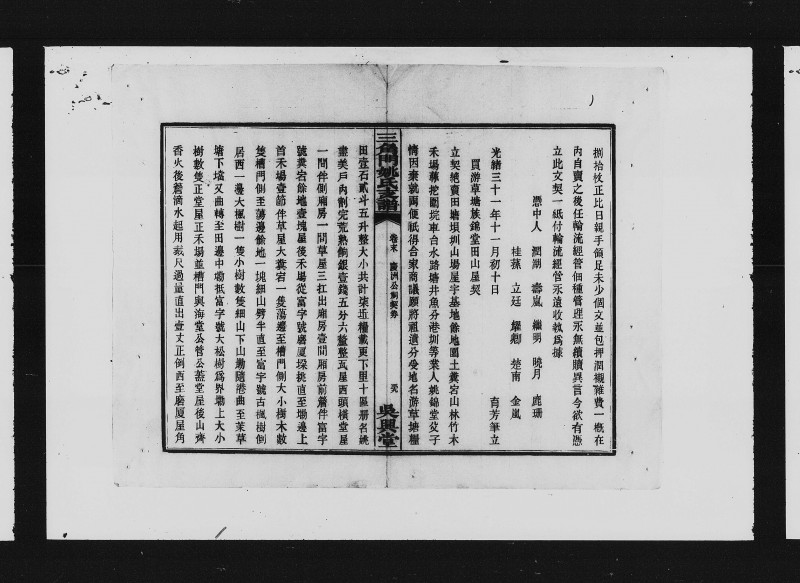 捌拾枚正比日親手領足未少個文並包押潤襯雜費一概在
內自賣之後任輪流經管佃種管理永無續贖異言今欲有憑
立此文契一紙付輪流經管永遠收執爲據
憑中人 潤湖 壽嵐 繼明 曉月 鹿珊
桂蓀 立廷 燿卿 楚南 金嵐
光緒三十一年十一月初十日 育芳筆立
買游草塘族錦堂田山屋契
立契絕賣田塘壩圳山場屋宇基地餘地園土糞宕山林竹木
禾場蓐挖圍垸車台水路塘井魚分港圳等業人姚錦堂父子
情因棄就兩便祇得合家商議願將祖遺分受地名游草塘糧
三角門姚氏支譜
卷末 慶洲公祠契券
吳興堂
田壹石貳斗五升整大小共計柒坵糧載更下里十區册名姚
盡美戶內割完荒熟餉銀壹錢五分六釐整瓦屋西頭橫堂屋
一間伴側廂房一間草屋三扛出廂房壹間厢房前簷伴富字
號糞宕餘地壹塊屋後禾場從富字號磨厦垜挑直至塝邊上
首禾場壹節伴草屋大糞宕一隻蕩邊至槽門側大小樹木數
隻槽門側至蕩邊餘地一塊細山劈半直至富字號古楓樹倒
居西一邊大楓樹一隻小樹數隻細山下山塝隨港曲至茉草
塘下壋又曲轉至田邊中塝祇富字號大松樹爲界塝上大小
樹數隻正堂屋正禾場並槽門與海堂公管公蒸堂屋後山齊
香火後簷滴水起用裁尺過量直出壹丈正倒西至磨厦屋角